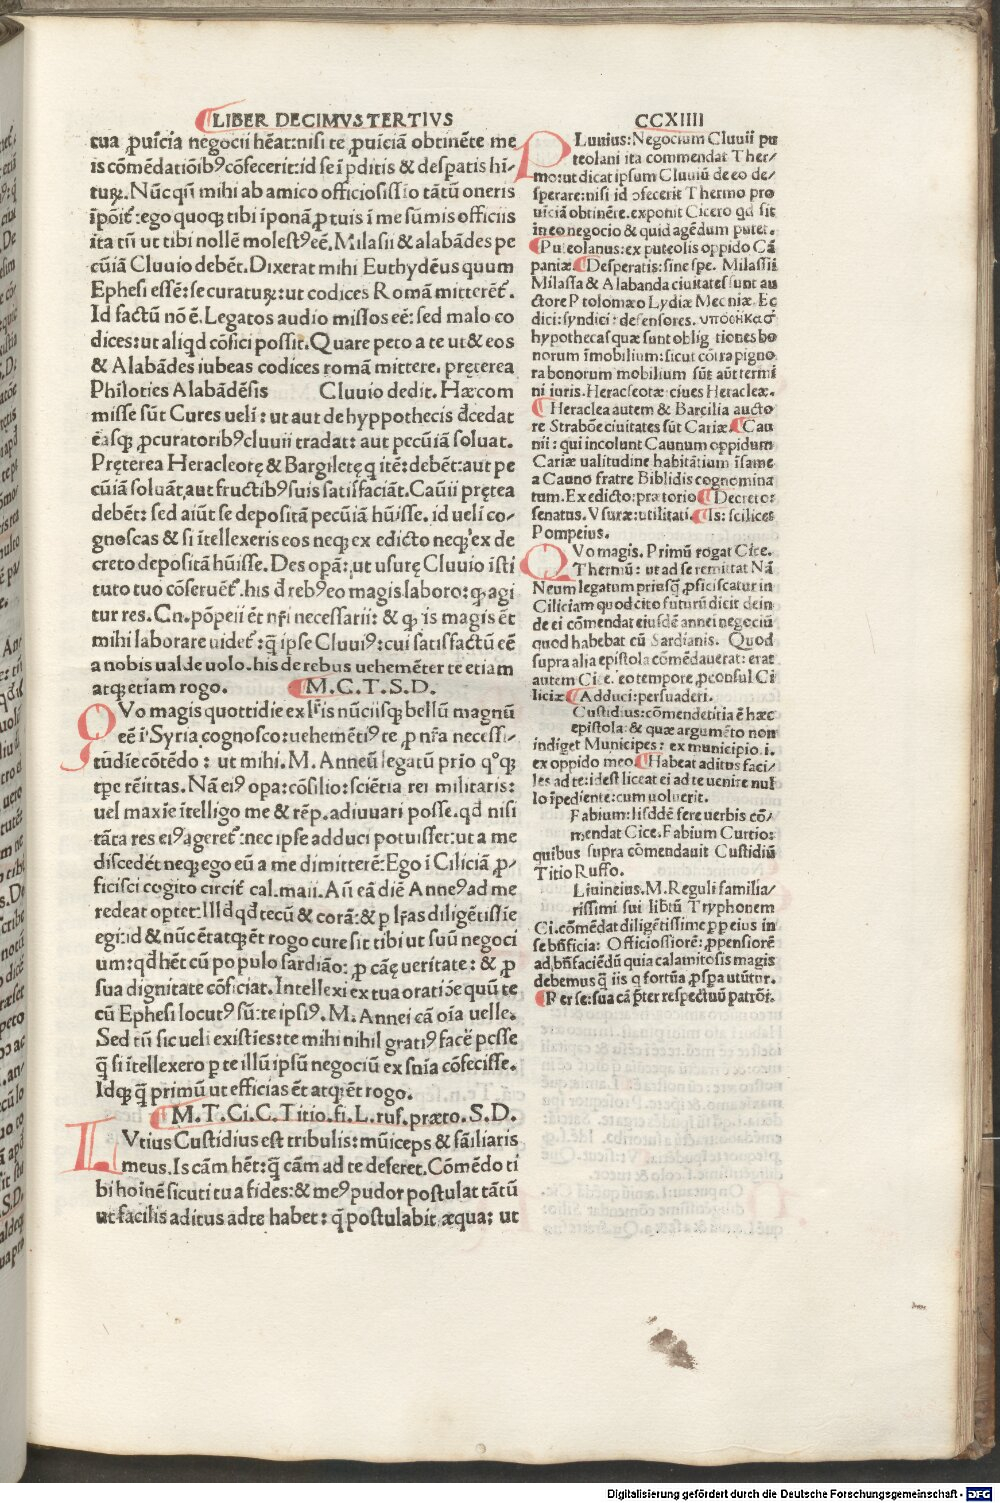 LIBER DECIMVS TERTIVS
CCXIIII
tua ꝓuı̄cia negocii hēat:nisi te ꝓuı̄ciā obtinēte me
is cōmēdatiōibꝰcōfecerit:id se ı̄ pditis & despatis hi-
tuꝝ. Nūc qm̄ mihi ab amico officiosissio tātū oneris
ı̄poīt̄:ego quoqꝫ tibi ı̄ponā ꝓ tuis ı̄ me sūmis officiis
ita tn̄ ut tibi nollē molestꝰeē. Milasii & alabādes pe
cūiā Cluuio debēt. Dixerat mihi Euthydēus quum
Ephesi essē: se curatuꝝ: ut codices Romā mitterēt̄.
Id factū nō ē. Legatos audio missos eē: sed malo co
dices: ut aliqd cōfici possit. Quare peto a te ut & eos
& Alabādes iubeas codices romā mittere. pręterea
Philoties Alabādēsis Cluuio dedit. Hæcom
misse sūt Cures ueli: ut aut de hyppothecis d̄cedat
ēasqꝫ ꝓcuratoribꝰcluuii tradat: aut pecūiā soluat.
Pręterea Heracleotę & Bargiletęq itē: debēt: aut pe
cūiā soluāt aut fructibꝰsuis satisfaciāt. Caūii pręteа
debēt: sed aiūt se depositā pecūiā hūisse. id ueli co-
gnoscas & si ı̄tellexeris eos neqꝫ ex edicto neqꝫ ex de
creto depositā hūisse. Des opā: ut usurę Cluuio ı̄sti
tuto tuo cōseruēt̄. his d̄ rebꝰeo magis laboro: qꝫ agi
tur res. Cn. pōpeii ēt nr̄i necessarii: & qꝫ is magis ēt
mihi laborare uidet̄: q̄ ipse Cluuiꝰ: cui satisfactū eē
a nobis ualde uolo. his de rebus uehemēter te etiam
atqꝫ etiam rogo. M. C. T. S. D.
QVo magis quottidie ex lr̄is nūciisqꝫ bellū magnū
eē ı̄ Syria cognosco: uehemētiꝰ te ꝓ nr̄a necessi-
tūdie cōtēdo: ut mihi. M. Anneū legatū prio qꝰqꝫ
tp̄e rēittas. Nā eiꝰ opa: cōsilio: sciētia rei militaris:
uel maxı̄e ı̄telligo me & rēp. adiuuari posse. qd nisi
tāta res eiꝰageret̄: nec ipse adduci potuisset: ut a me
discedēt neqꝫ ego eū a me dimitterē: Ego ı̄ Ciliciā ꝓ-
ficisci cogito circit̄ cal. maii. Aū eā diē Anneꝰad me
redeat optet: Illd qd tecū & corā: & p lr̄as diligētissı̄e
egi: id & nūc ētatqꝫ ēt rogo cure sit tibi ut suū negoci
um: qd hēt cū populo sardiāo: ꝓ cāę ueritate: & ꝓ
sua dignitate cōficiat. Intellexi ex tua oratiōe quū te
cū Ephesi locutꝰ sū: te ipsiꝰ. M. Annei cā oı̄a uelle.
Sed tn̄ sic ueli existīes: te mihi nihil gratiꝰ facē posse
q̄ si ı̄tellexero p te illū ipsū negociū ex sn̄ia cōfecisse.
Idqꝫ q̄ primū ut efficias ēt atqꝫ ēt rogo.
M. T. Ci. C. Titio. fi. L. ruf. præto. S. D.
LVtius Custidius est tribulis: mūiceps & fāiliaris
meus. Is cām hēt: q̄ cām ad te deferet. Cōmēdo ti
bi hoı̄nē sicuti tua fides: & meꝰ pudor postulat tātū
ut facilis aditus adte habet: q̄ postulabit æqua: ut
PLuuius: Negocium Cluuii pu
teolani ita commendat Ther-
mo: ut dicat ipsum Cluuiū de eo de-
sperare: nisi id ɔfecerit Thermo pro
uı̄ciā obtinēre. exponit Cicero qd sit
in eo negocio & quid agēdum putet.
Puteolanus: ex puteolis oppido Cā
paniæ. Desperatis: sine spe. Milassii
Milassa & Alabanda ciuitates sunt au
ctore Ptolomæo Lydiæ Meoniæ. Ec
dici: syndici: defensores. υποθηκασ
hypothecas quæ sunt oblig tiones bo
norum ı̄mobilium: sicut cōtra pigno
ra bonorum mobilium sūt aūt termi
ni iuris. Heracleotæ ciues Heracleæ.
Heraclea autem & Barcilia aucto
re Strabōe ciuitates sūt Cariæ. Cau
nii: qui incolunt Caunum oppidum
Cariæ ualitudine habitātium ı̄fame
a Cauno fratre Biblidis cognomina
tum. Ex edicto: prætorio Decreto:
senatus. Vsuræ: utilitati. Is: scilicet
Pompeius.
QVo magis. Primū rogat Cice.
Thermū: ut ad se remittat Nā
Neum legatum priusq̄ ꝓficiscatur in
Ciliciam quod cito futurū dicit dein
de ei cōmendat eiusdē annei negociū
quod habebat cū Sardianis. Quod
supra alia epistola cōmēdauerat: erat
autem Cice. eo tempore ꝓconsul Ci
liciæ Adduci: persuaderi.
Custidius: cōmendetitia ē hæc
epistola: & quæ argumēto non
indiget Municipes: ex municipio. i.
ex oppido meo. Habeat aditus faci-
les ad te: idest liceat ei ad te uenire nul
lo ı̄pediente: cum uoluerit.
Fabium: Iisddē fere uerbis cō-
mendat Cice. Fabium Curtio:
quibus supra cōmendauit Custidiū
Titio Ruffo.
Liuineius. M. Reguli familia-
rissimi sui lib̄tū Tryphonem
Ci. cōmēdat diligētissime pp eius in
se bn̄ficia: Officiossiorē: ꝓpensiorē
ad bn̄faciēdū quia calamitosis magis
debemus q̄ iis q fortūa ꝓspa utūtur.
Per se: sua cā p̄ter respectuū patrōi.
Digitalisierung gefördert durch die Deutsche Forschungsgemeinschaft - DFG